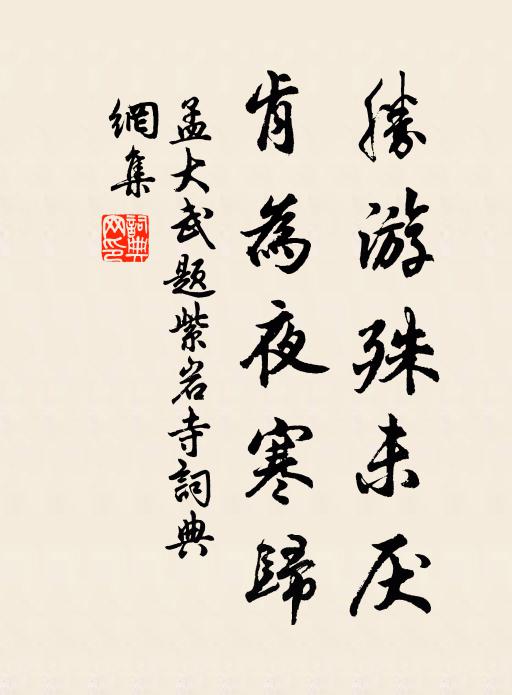 勝游殊未厌
肯為夜寒歸
孟大武题紫岩寺詞典
網集
詞典网印